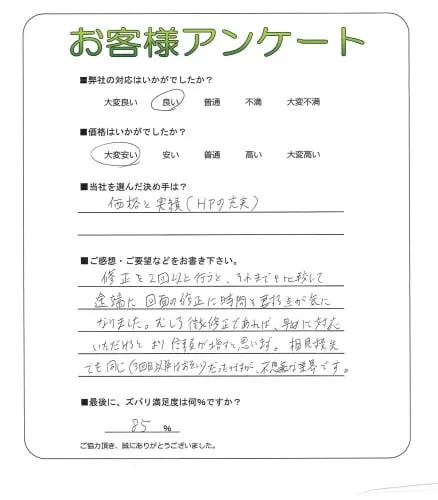 お客様アンケート
■弊社の対応はいかがでしたか？
大変良い 良い 普通 不満 大変不満
■価格はいかがでしたか？
大変安い 安い 普通 高い 大変高い
■当社を選んだ決め手は？
価格と実績(HPの充実)
■ご感想・ご要望などをお書き下さい。
修正を2回以上行うと、それまでと比較して
途端に図面の修正に時間を要する点が気に
なりました。むしろ微修正であれば、早めに対応
いただけると より信頼が増すと思います。相見積先
でも同じ(3回目以降はおそい)だったのですが、不思議な業界です。
■最後に、ズバリ満足度は何%ですか？
85 %
ご協力頂き、誠にありがとうございました。